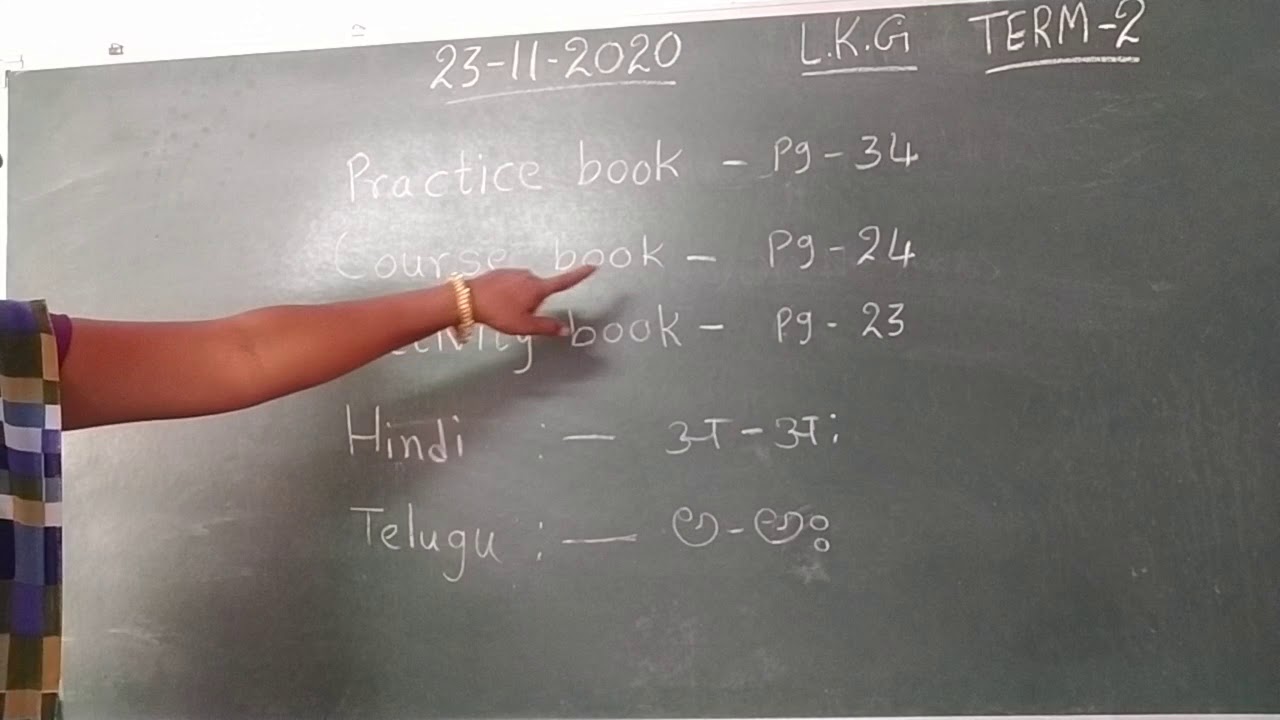 23-11-2020 L.K.G TERM-2
Practice book - Pg - 34
Course book - Pg - 24
book - Pg - 23
Hindi :- अ - अः
Telugu :- అ - అః